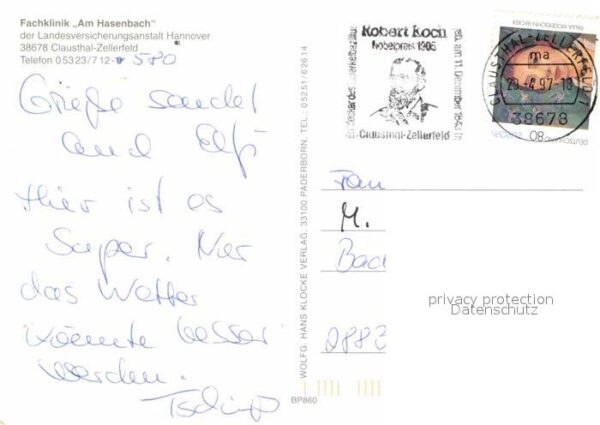 Fachklinik „Am Hasenbach"
der Landesversicherungsanstalt Hannover
38678 Clausthal-Zellerfeld
Telefon 05323/712- 580
Grüße sendet
auch
Hier ist es
Super. Nur
das Wetter
könnte besser
werden.
Tschüß
BP860
WOLFG. HANS KLOCKE VERLAG, 33100 PADERBORN TEL. 05251/62614
Robert Koch
Nobelpreis 1905
geb. am 11. Dezember 1843 in
Clausthal-Zellerfeld
CLAUSTHAL-ZELLERFELD 1
ma
97-18
38678
PAULA MODERSOHN-BECKER
Frau
M.
Bad
privacy protection
Datenschutz